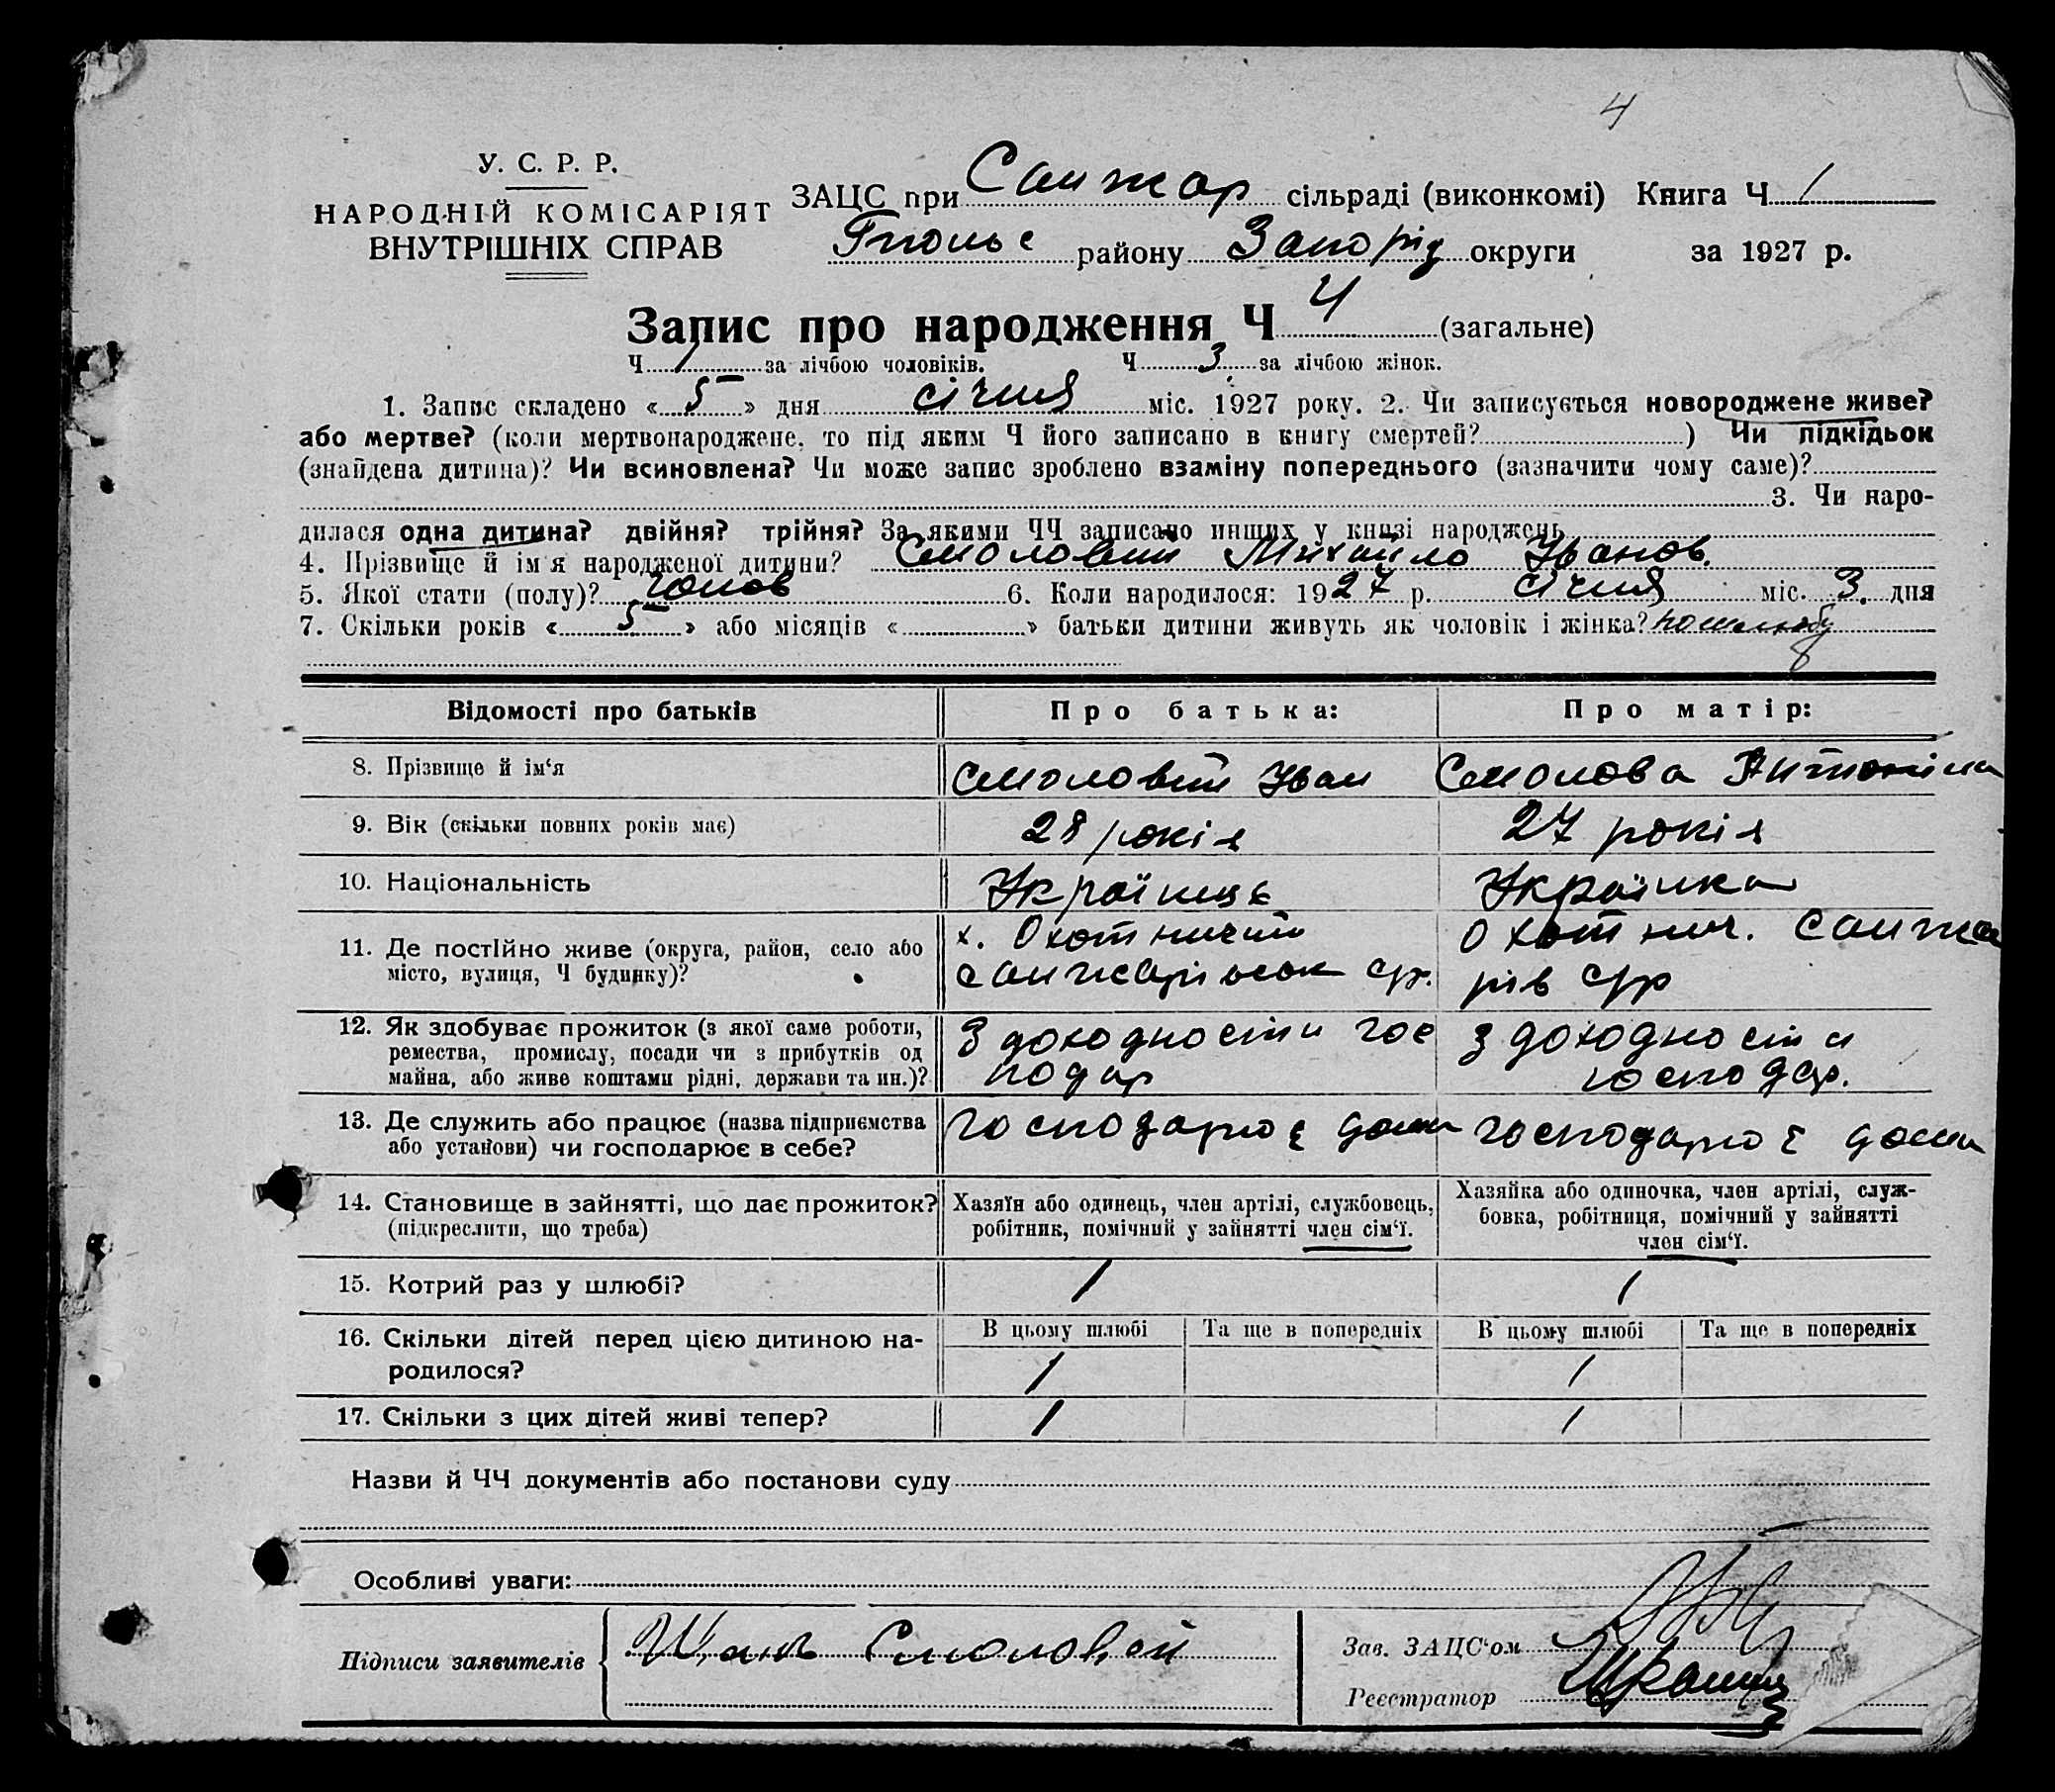 4
У. С. Р. Р.
НАРОДНІЙ КОМІСАРІЯТ
ВНУТРІШНІХ СПРАВ
ЗАЦС при Санжар сільраді (виконкомі) Книга Ч 1
району Запоріз округи за 1927 р.
Запис про народження Ч 4 (загальне)
Ч 1 за лічбою чоловіків. Ч 3 за лічбою жінок.
1. Запис складено « 5 » дня січня міс. 1927 року. 2. Чи записується новороджене живе?
або мертве? (коли мертвонароджене, то під яким Ч його записано в книгу смертей? ) Чи підкідьок
(знайдена дитина)? Чи всиновлена? Чи може запис зроблено взаміну попереднього (зазначити чому саме)?
3. Чи наро-
дилася одна дитина? двійня? трійня? За якими ЧЧ записано инших у книзі народжень
4. Прізвище й імя народженої дитини? Смоловий Михайло Іванов.
5. Якої стати (полу)? чолов 6. Коли народилося: 1927 р. січня міс. 3. дня
7. Скільки років « 5 » або місяців « » батьки дитини живуть як чоловік і жінка? по шлюбу
Відомості про батьків
Про батька:
Про матір:
8. Прізвище й ім‘я
Смоловий Іван
Смолова Антоніна
9. Вік (скільки повних років має)
28 років
27 років
10. Національність
Українць
Українка
11. Де постІйно живе (округа, район, село або
місто, вулиця, Ч будинку)?
х. Охотничий
санжарівськ с/р.
Охотнич. Санжа
рів с/р
12. Як здобуває прожиток (з якої саме роботи,
ремества, промислу, посади чи з прибутків од
майна, або живе коштами рідні, держави та ин.)?
З доходности гос
подар
З доходности
господар.
13. Де служить або працює (назва підприємства
або установи) чи господарює в себе?
господарює дома
господарює дома
14. Становище в зайнятті, що дає прожиток?
(підкреслити, що треба)
Хазяїн або одинець, член артілі, службовець,
робітник, помічний у зайнятті член сім‘ї.
Хазяйка або одиночка, член артілі, служ-
бовка, робітниця, помічний у зайнятті
член сім‘ї.
15. Котрий раз у шлюбі?
1
1
16. Скільки дітей перед цією дитиною на-
родилося?
В цьому шлюбі
Та ще в попередніх
В цьому шлюбі
Та ще в попередніх
1
1
17. Скільки з цих дітей живі тепер?
1
1
Назви й ЧЧ документів або постанови суду
Особливі уваги:
Підписи заявителів
Смоловой
Зав. ЗАЦС‘ом
Реєстратор